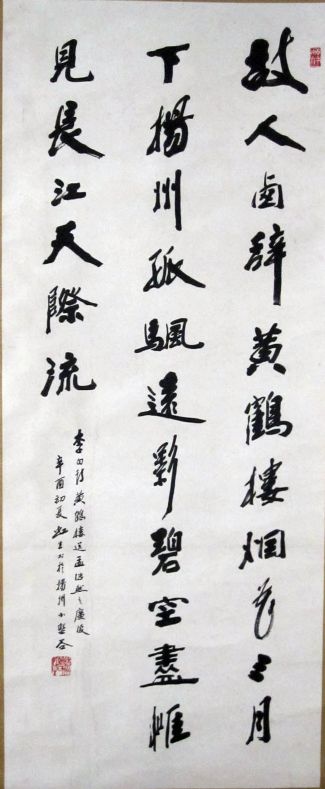 故人西辞黄鹤楼烟花三月
下揚州孤颿遠影碧空盡惟
見長江天際流
李白詩黄鶴樓送孟浩然之廣陵
辛酉初夏 於揚州